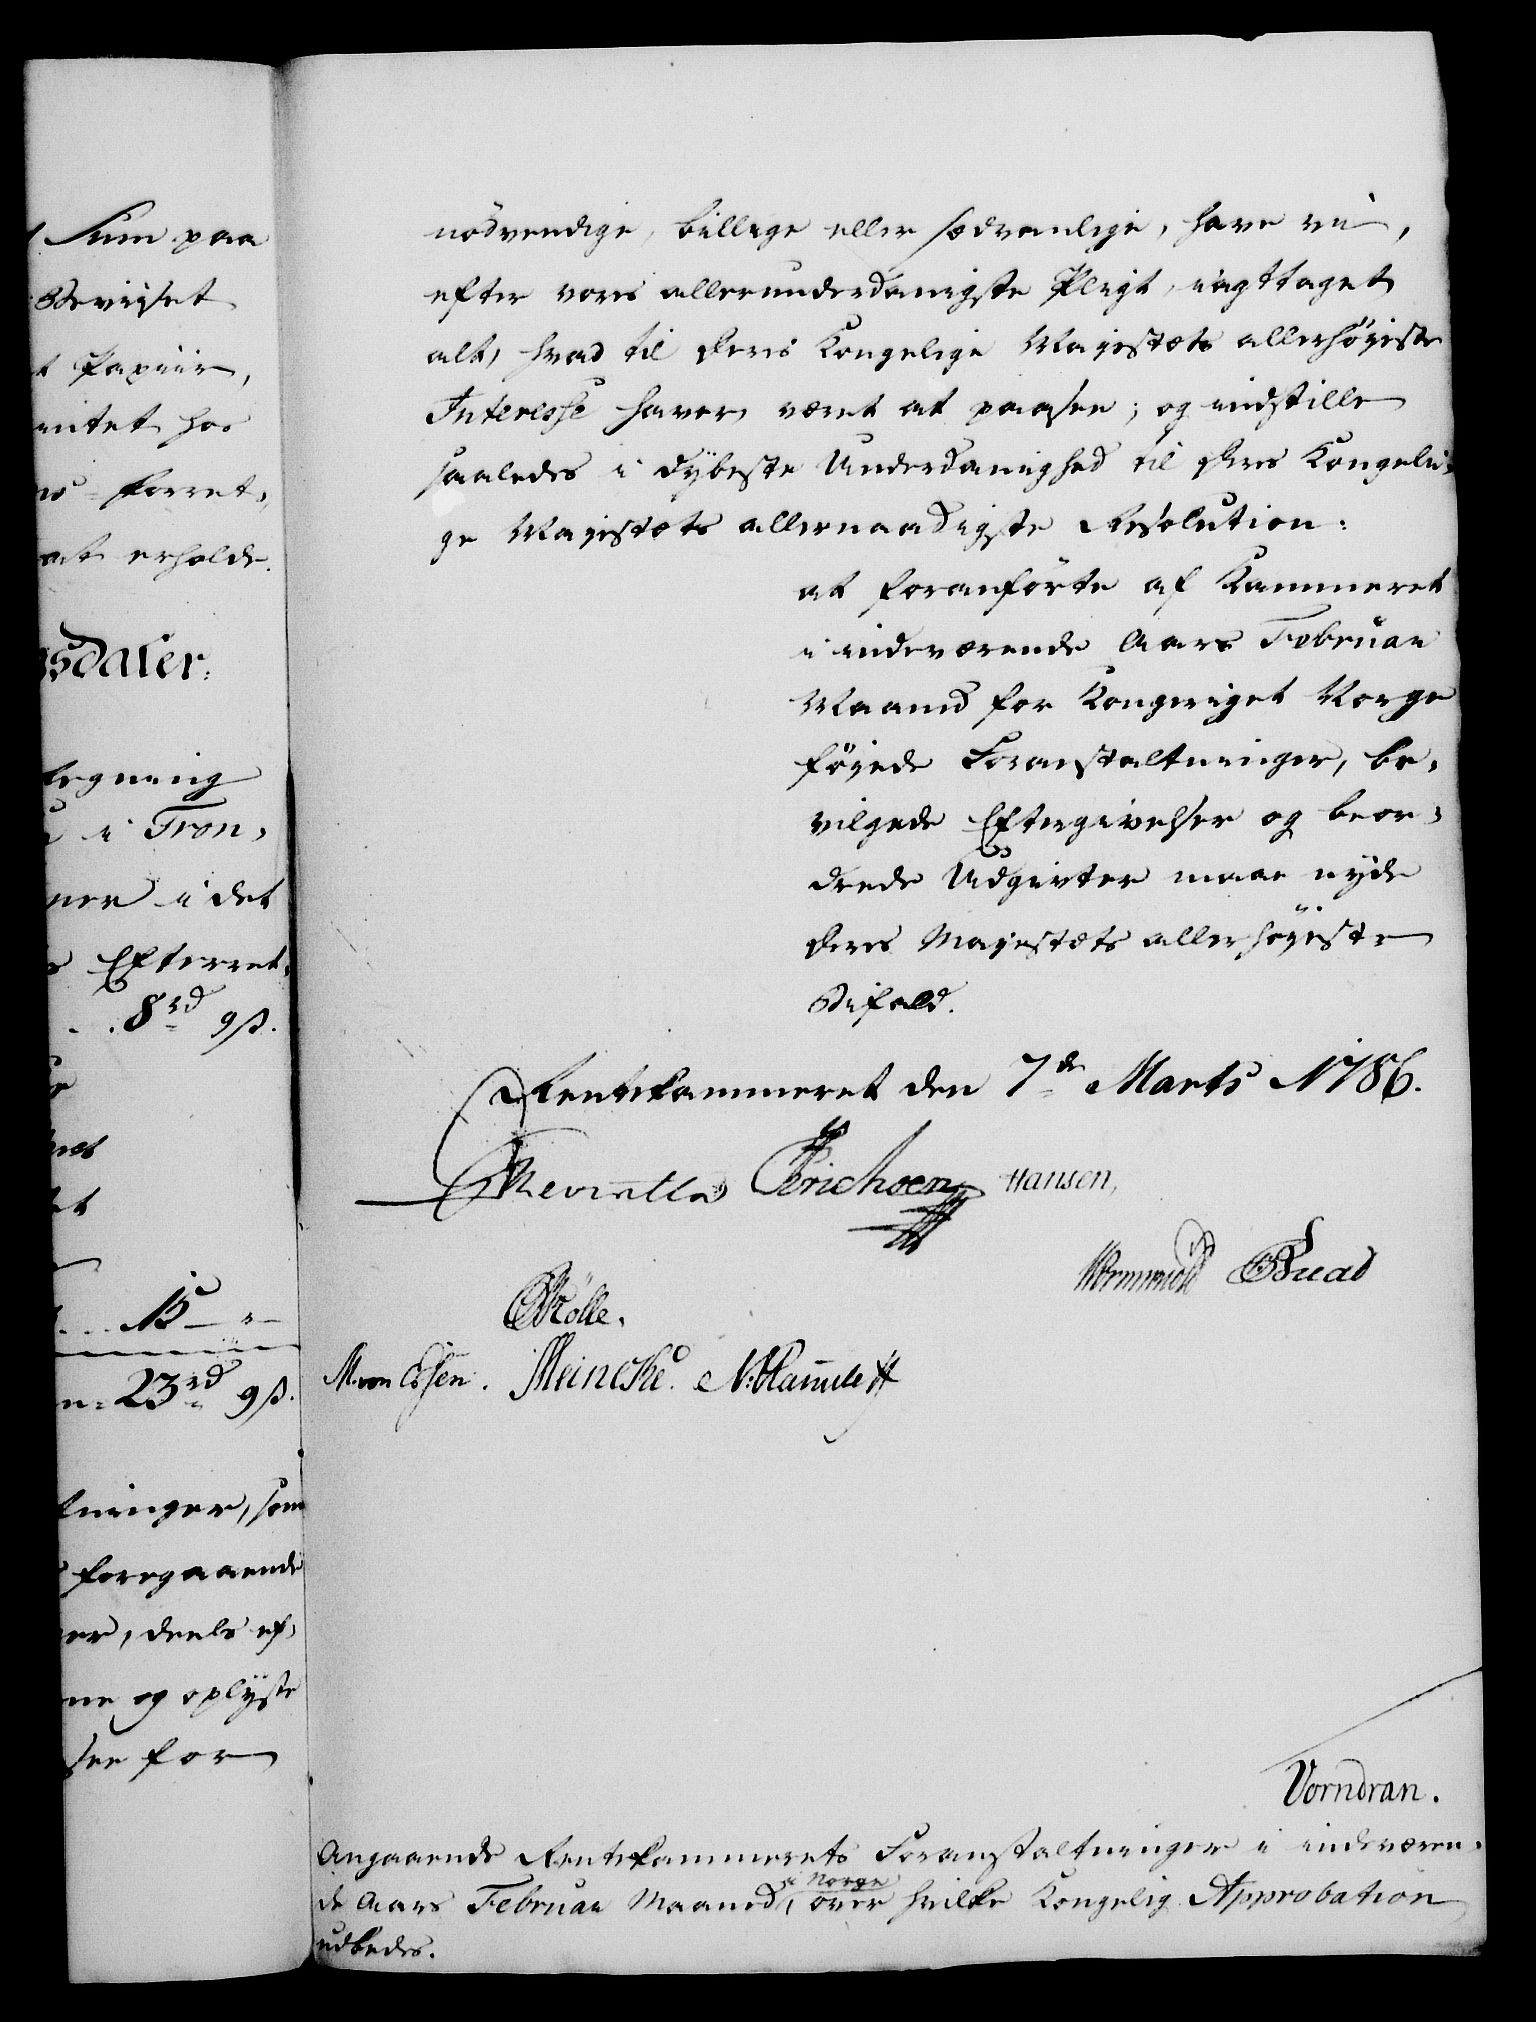 Sum paa
Beviiset
Papiir,
mitet hos
forret,
at erholde.
sdaler:
tegning
i Tron,
ner i det
Efterret,
8 rd 9 ß.
15 — " —
23 rd 9 ß.
tninger, som
foregaaende
er, deels ef,
ne og oplyste
see for
nödvendige, billige eller sædvanlige, have vi,
efter vores allerunderdanigste Pligt, iagttaget
alt, hvad til Deres Kongelige Majestæts allerhøyeste
Interesse haver været at paasee; og indstille
saaledes i dybeste Underdanighed til Deres Kongeli,
ge Majestæts allernaadigste Resolution:
at foranförte af Kammeret
i indeværende Aars Februar
Maaned for Kongeriget Norge
föjede Foranstaltninger, be,
vilgede Eftergivelser og beor,
drede Udgivter maae nyde
Deres Majestæts allerhöyeste
Bifald.
Rentekammeret den 7de Marts 1786.
Reventlow Erichsen Hansen,
Wormskiold
Mölle.
M. von Essen. Meincke.
Vorndran.
Angaaende Rentekammerets Foranstaltninger i indeværen,
de Aars Februar Maaned, i Norge over hvilke Kongelig Approbation
udbedes.